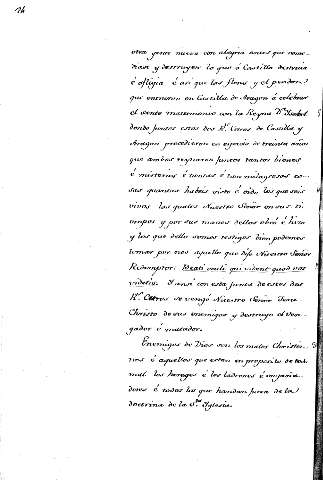 24
otra gente nueva con alegria antes que reme-
diase y destruyese lo que á Castilla destruia
é afligia é asi que las flores y el pendon
que entraron en Castilla de Aragon á celebrar
el santo matrimonio con la Reyna Dª Isabel
donde juntas estas dos Rs. Casas de Castilla y
Aragon procedieron en espacio de treinta años
que ambos reynaron juntos tantos bienes
é misterios é tantas é tan milagrosas co-
sas quantas habeis visto é oido los que sois
vivos las quales Nuestro Señor en sus ti-
empos y por sus manos dellos obró é hizo
y los que dello somos testigos bien podemos
tomar por nos aquello que dijo Nuestro Señor
Redemptor: Beati oculi qui vident quod vos
videtis. Y ansi con esta junta de estas dos
Rs. Casas se vengó Nuestro Señor Jesu
Christo de sus enemigos y destruyó el ven-
gador é matador.
Enemigos de Dios son los malos Christia-
nos é aquellos que estan en proposito de mal
los hereges é los ladrones é engaña-
dores é todos los que handan fuera de la
doctrina de la Sta. Yglesia.